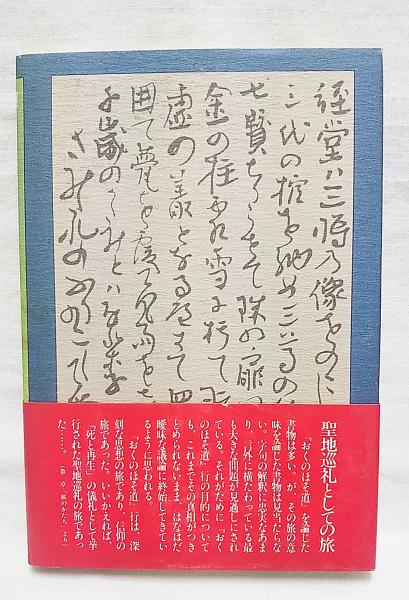 経堂ハ三将の像をのこ
三代の棺を納め三尊の
七寶ちりうせて珠の扉
金の柱霜雪に朽て
虚の叢となるへきを四
囲て甍を覆て風雨を
千歳のかたみとハなれり
さみたれのふりのこして
聖地巡礼としての旅
『おくのほそ道』を論じた
書物は多い。が、その旅の意
味を論じた書物は見当たらな
い。字句の解釈に忠実なあま
り、言外に横たわっている最
も大きな問題が見過しにされ
ている。それがために『おく
のほそ道』行の目的について
も、これまでその真相がつき
とめられないまま、はなはだ
曖昧な議論に終始してきてい
るように思われる。
『おくのほそ道』行は、深
刻な思想の旅であり、信仰の
旅であった。いいかえれば、
『死と再生』の儀礼として挙
行された聖地巡礼の旅であっ
た……。（第一章「旅のかたち」より）